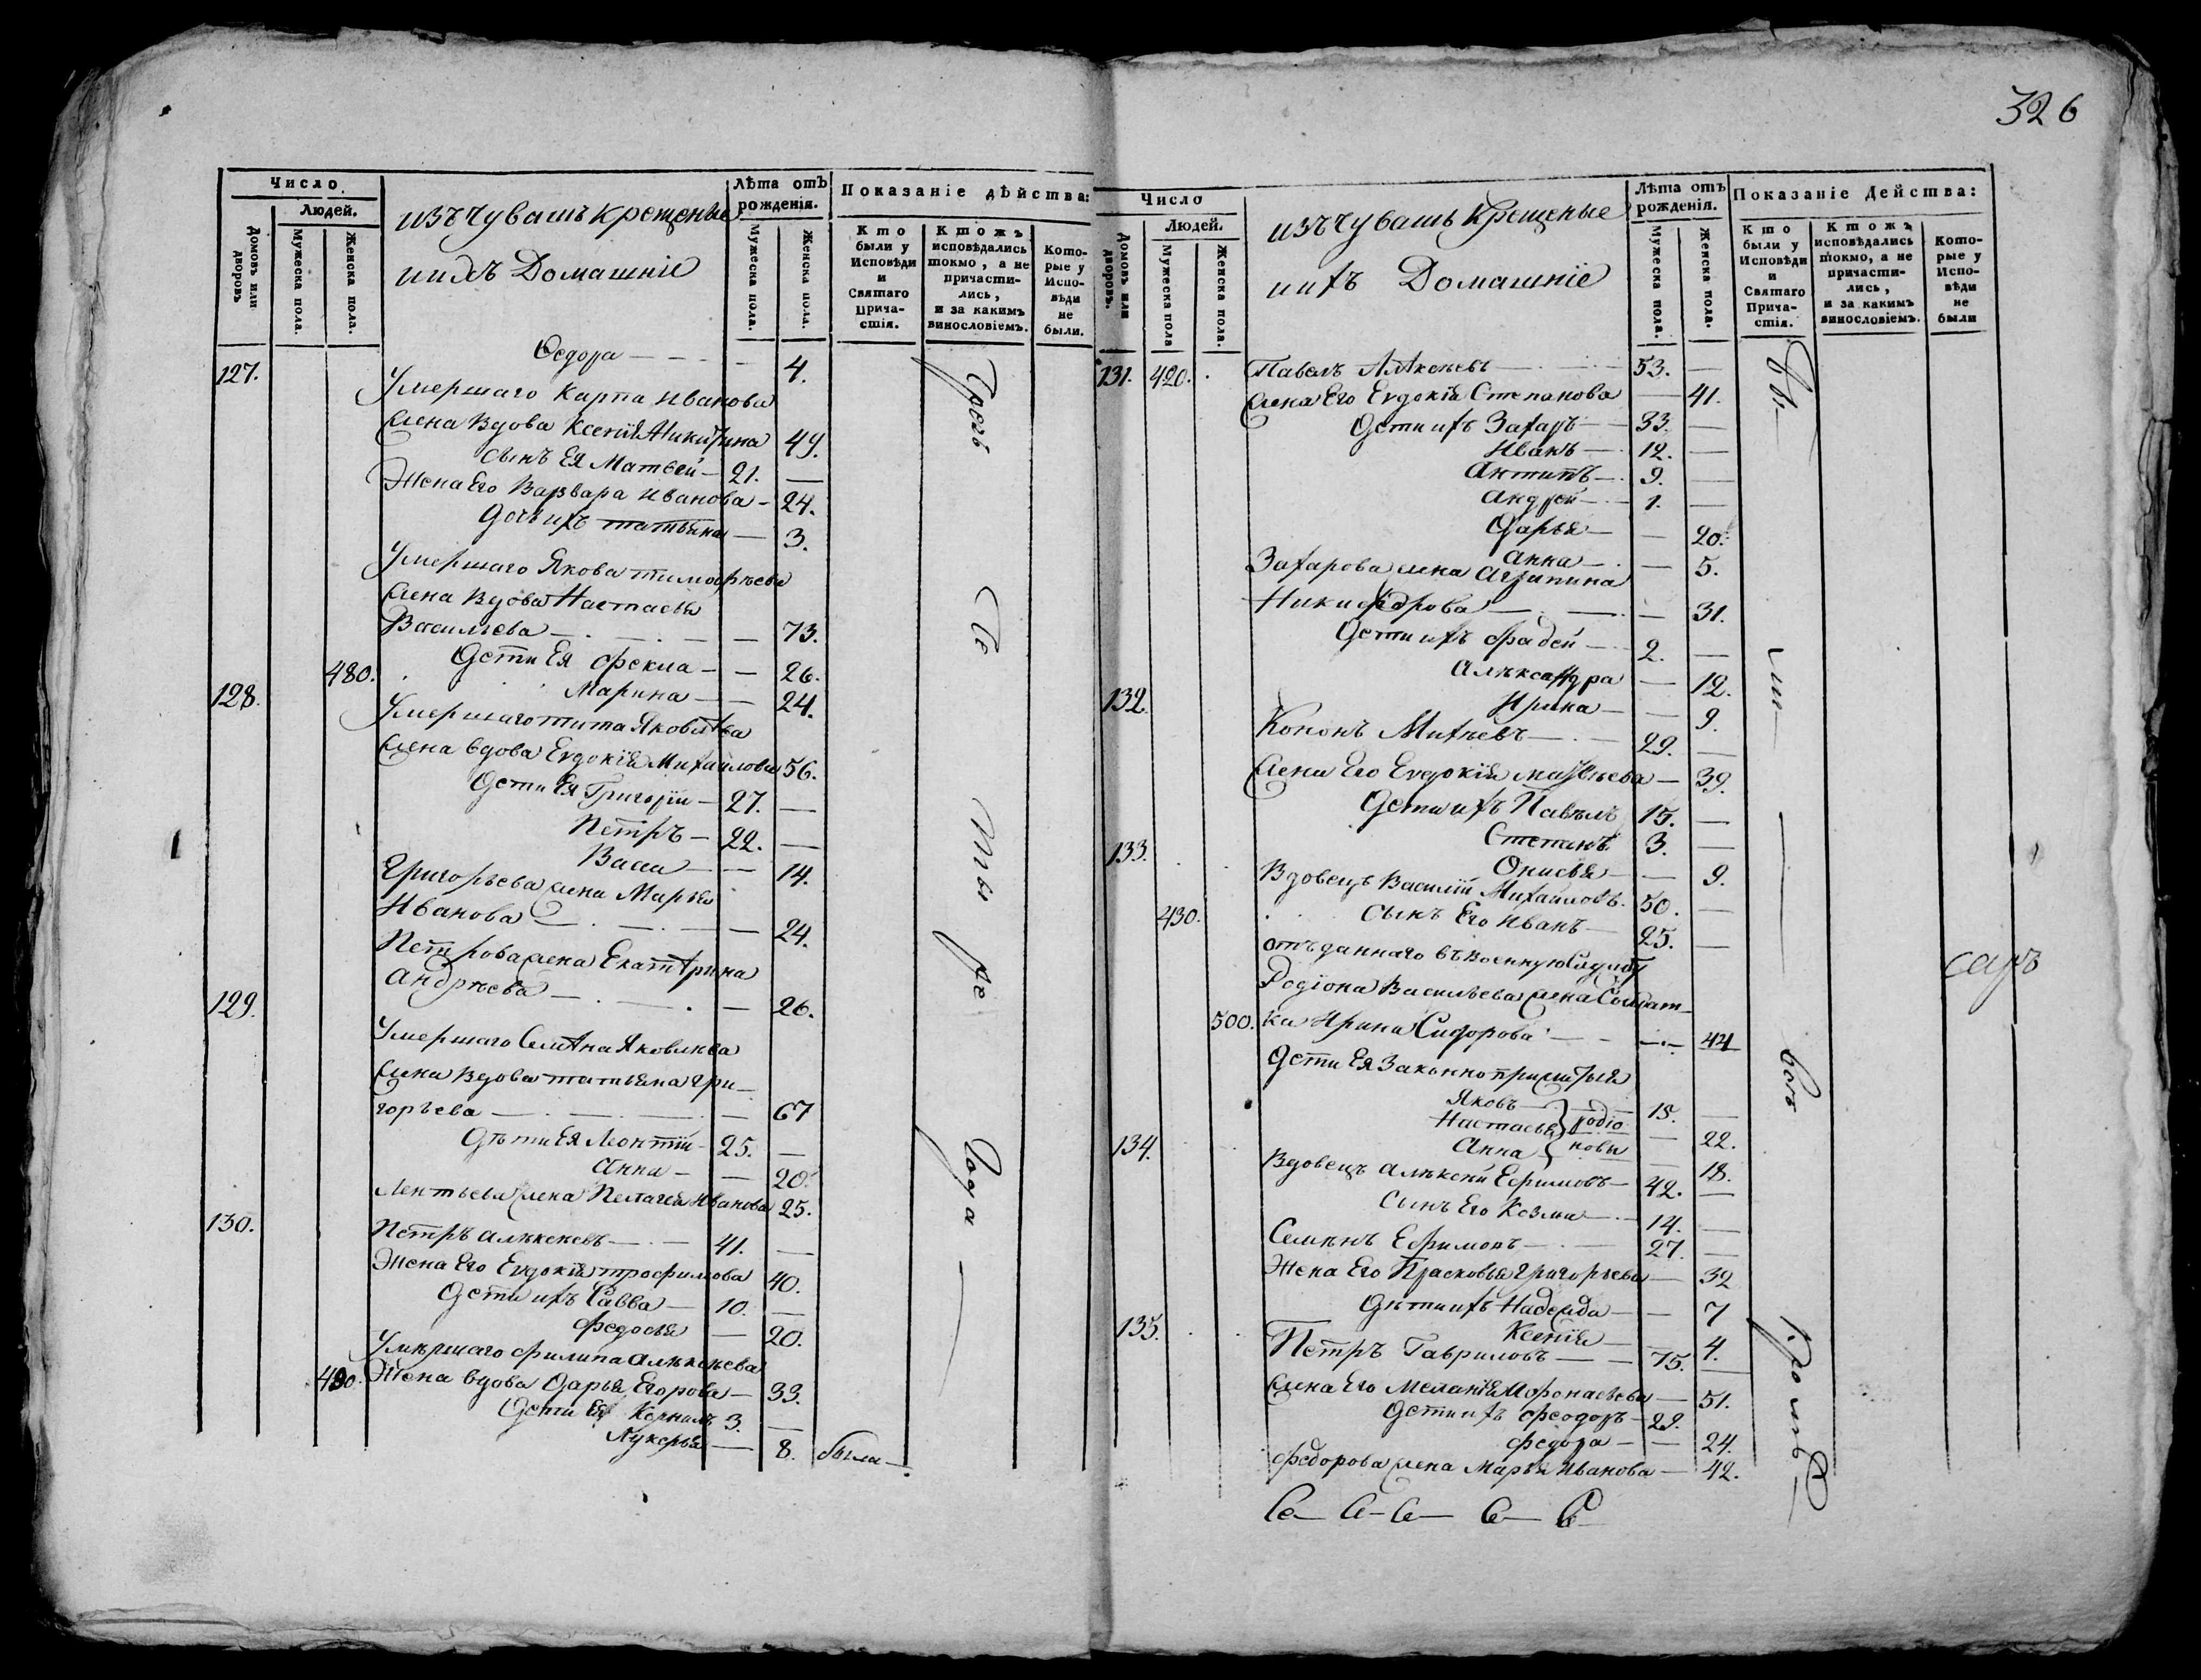 326
Число
Людей.
Домовъ или дворовъ
Мужеска пола.
Женска пола.
изъ Чувашъ крещеные
и ихъ Домашніе
Лѣта отъ рожденія.
Мужеска пола.
Женска пола.
Показаніе дѣйства:
Кто были у Исповѣди и Святаго Прича-стія.
Ктожъ исповѣдались токмо, а не причасти-лись, и за какимъ винословіемъ.
Кото-рые у Испо-вѣди не были.
Федора — 4.
127.
Умершаго Карпа Иванова
жена Вдова Ксенія Никитина 49.
сынъ Ея Матвей — 21. —
Жена Его Варвара Иванова — 24.
Дочь ихъ татьяна — 3.
Умершаго Якова тимофѣева
жена Вдова Настасья
Васильева — — 73.
480. Дети Ея Фекла — — 26.
Марина — — 24.
128.
Умершаго тита Яковлева
жена вдова Евдокія Михайлова 56.
Дети Ея Григорій — 27. —
Петръ — 22. —
Васса — — 14.
Григорьева жена Марья
Иванова — — 24.
Петрова жена Екатерина
Андрѣева — — 26.
129.
Умершаго Семена Яковлева
жена Вдова татьяна Гри-
горьева — — 67
Дѣти Ея Леонтій — 25. —
Анна — — 20.
Лентьева жена Пелагея Иванова 25.
130.
Петръ Алексеевъ — 41. —
Жена Его Евдокія трофимова 40.
Дети ихъ Савва — 10. —
Федосья — 20.
Умершаго Филипа Алексѣева
490. Жена вдова Дарья Егорова — 33.
Дети Ея Корнилъ 3. —
Лукерья — 8. была —
Число
Людей.
Домовъ или дворовъ.
Мужеска пола
Женска пола.
изъ Чувашъ Крещеные
и ихъ Домашніе
Лѣта отъ рожденія.
Мужеска пола.
Женска пола.
Показаніе Действа:
Кто были у Исповѣди и Святаго Прича-стія.
Ктожъ исповѣдались токмо, а не причасти-лись, и за какимъ винословіемъ.
Кото-рые у Испо-вѣди не были
131. 420. Павелъ Алексеевъ — 53. —
жена Его Евдокія Степанова — 41.
Дети ихъ Захаръ — 33. —
Иванъ — 12. —
Антипъ — 9. —
Андрей — 1. —
Дарья — — 20.
Анна — — 5.
Захарова жена Агрипина
Никифорова — — 31.
Дети ихъ Фадей — 2. —
Александра — 12.
Ирина — — 9.
132.
Кононъ Михеевъ — 29. —
жена Его Евдокія Матвѣева — 39.
Дети ихъ Павелъ 15. —
Степанъ 3. —
Онисья — — 9.
133.
Вдовецъ Василій Михайловъ. 50. —
430. сынъ Его Иванъ — 25. —
отъданнаго въ военную службу
Родіона Васильева жена Солдат-
500. ка Ирина Сидорова — — 44
Дети Ея Законноприжитыя
Яковъ — 15. —
Настасья — 22.
Анна — 18.
родіо
новы
134.
Вдовецъ Алексей Ефимовъ — 42. —
сынъ Его Козма — 14. —
Семенъ Ефимовъ — 27. —
Жена Его Прасковья Григорьева — 32
Дѣти ихъ Надежда — — 7
Ксенія — 4.
135.
Петръ Гавриловъ — — 75. —
жена Его Меланія Афонасьева — 51.
Дети ихъ Феодоръ — 29.
Федора — — 24.
Федорова жена Марья Иванова — 42.